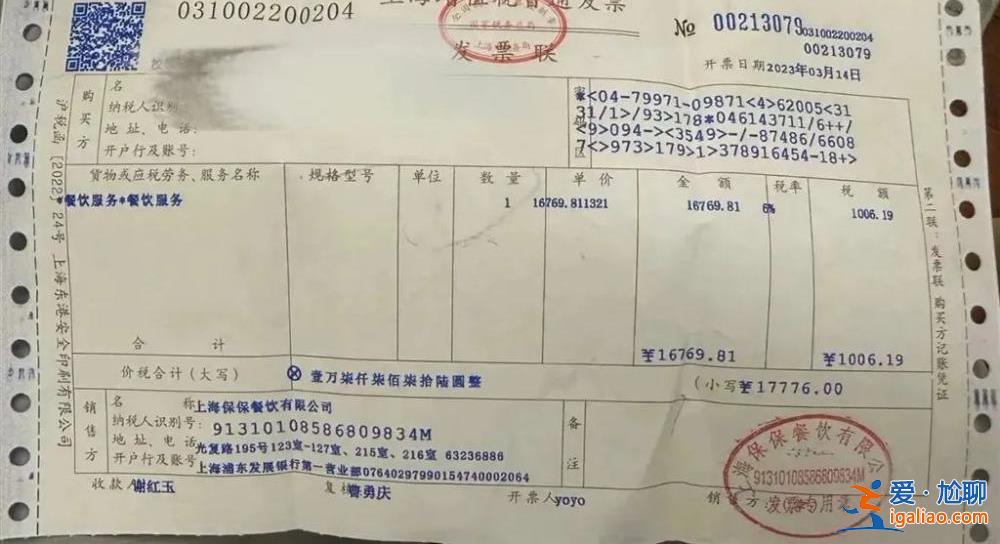 031002200204
上海增值税普通发票
发票联
№ 00213079
031002200204
00213079
开票日期2023年03月14日
购买方
名
纳税人识别
地址、电话:
开户行及账号:
*<04-79971-09871<4>62005<31
31/1>/93>178*046143711/6++/
<9>094-><3549>-/-87486/6608
7<>973>179>1>378916454-18+>
货物或应税劳务、服务名称 规格型号 单位 数量 单价 金额 税率 税额
*餐饮服务*餐饮服务 1 16769.811321 16769.81 6% 1006.19
合计 ¥16769.81 ¥1006.19
价税合计(大写) ⊗ 壹万柒仟柒佰柒拾陆圆整 (小写 ¥17776.00
销售方
名称 上海保保餐饮有限公司
纳税人识别号: 91310108586809834M
地址、电话 光复路195号123室-127室、215室、216室 63236886
开户行及账号 上海浦东发展银行第一营业部076402979901547400​02064
备注
收款人 谢红玉 复核 鲁勇庆 开票人 yoyo 销售方
保保餐饮有限公
91310108586809834M
发票专用
沪税函〔2022〕24号 上海东港安全印刷有限公司
第二联:发票联 购买方记账凭证
爱·尬聊
igaliao.com